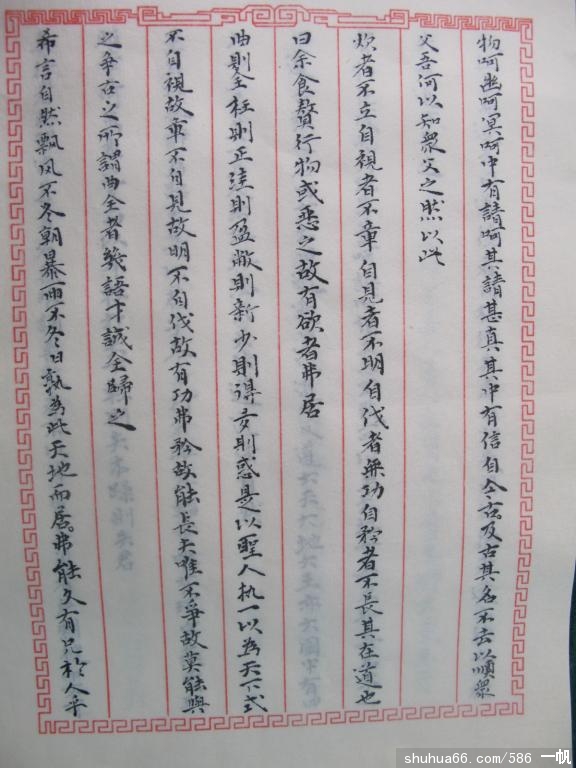 物呵幽呵冥呵中有請呵其請甚真其中有信自今及古其名不去以順衆
父吾何以知衆父之然以此
炊者不立自視者不章自見者不明自伐者無功自矜者不長其在道也
曰余食贅行物或惡之故有欲者弗居
曲則全枉則正洼則盈敝則新少則得多則惑是以聖人執一以為天下式
不自視故章不自見故明不自伐故有功弗矜故能長夫唯不爭故莫能與
之爭古之所謂曲全者幾語才誠全歸之
希言自然飄风不冬朝暴雨不冬日孰為此天地而居弗能久有兄於人乎
shuhua66.com/586 一帆